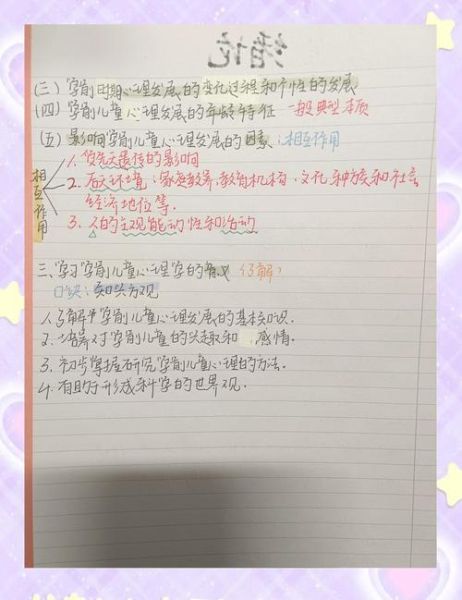 绪论
(三)学前时期心理发展的变化过程和个性的发展
(四)学前儿童心理发展的年龄特征 一般典型本质
(五)影响学前儿童心理发展的因素:相互作用
相互作用
1.优先天遗传的影响
2.后天环境:家庭教养、教育机构、文化、种族和社会
经济地位等.
3.人的主观能动性和活动
三、学习学前儿童心理学的意义(了解)
口诀:知兴方观
1.了解学前儿童心理发展的基本知识.
2.培养对学前儿童的兴趣和感情.
3.初步掌握研究学前儿童心理的方法.
4.有助于形成科学的世界观.